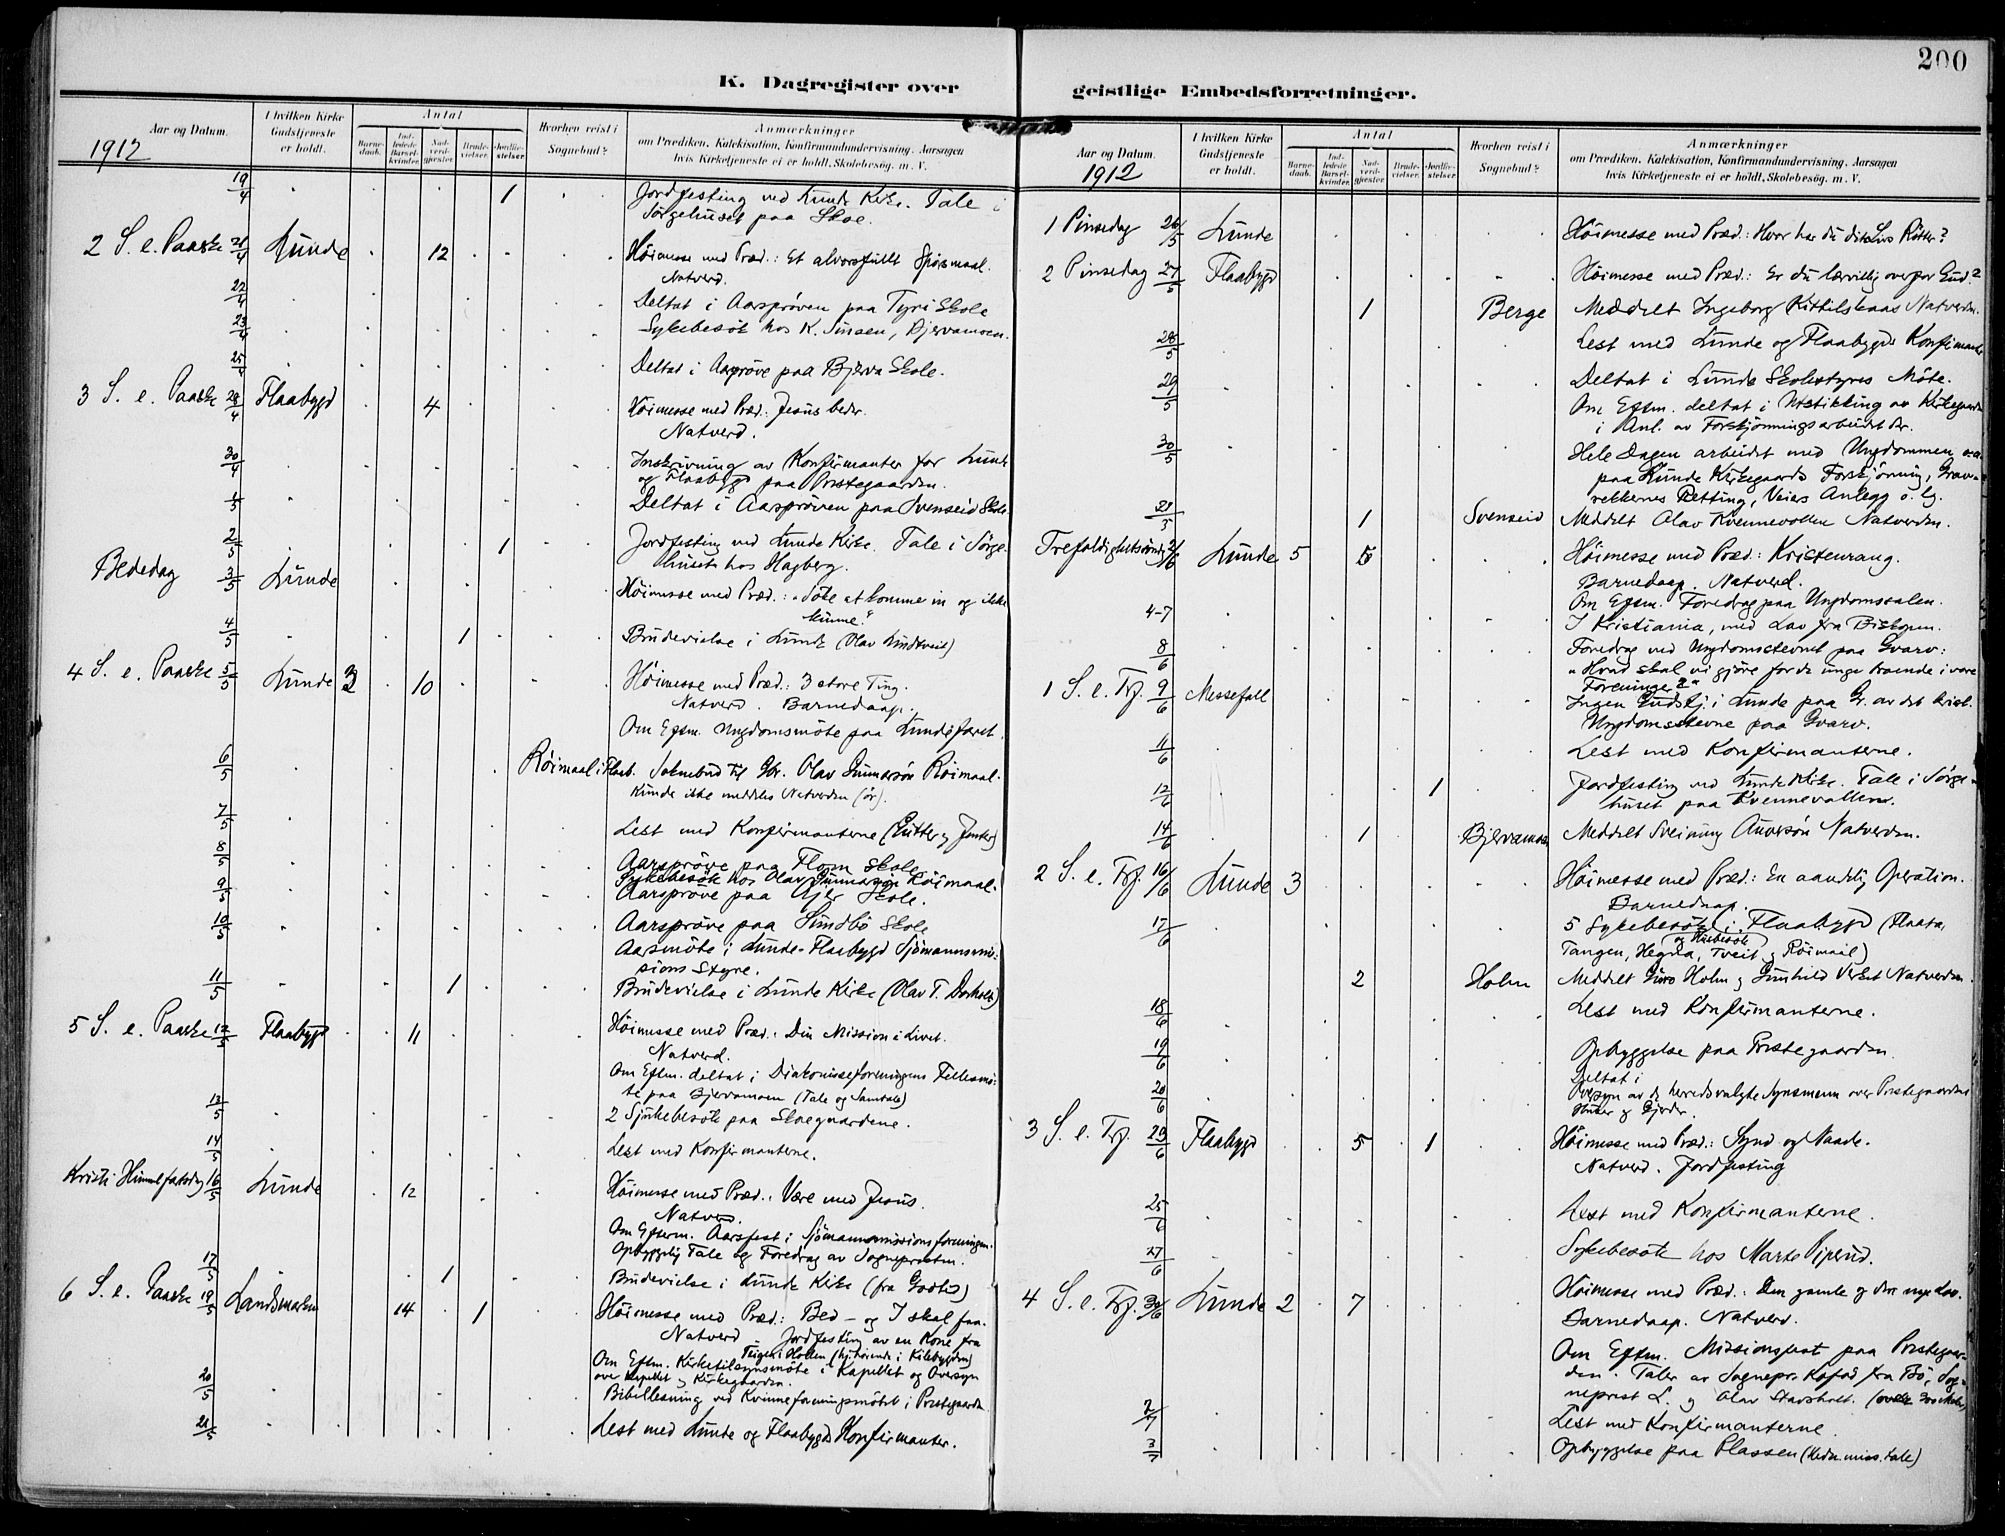 200
K. Dagregister over
geistlige Embedsforretninger.
Aar og Datum.
1912
I hvilken Kirke Gudstjeneste er holdt.
Antal
Barnedaab.
Indledede Barselkvinder.
Nadverdgjester.
Brudevielser.
Jordfæstelser
Hvorhen reist i Sognebud?
Anmærkninger
om Prædiken, Katekisation, Konfirmandundervisning. Aarsagen
hvis Kirketjeneste ei er holdt, Skolebesøg. m. V.
19/4 1 Jordfesting ved Lunde Kirke. Tale i
Sørgehuset paa Skoe.
2 S. e. Paaske 21/4 Lunde 12 Høimesse med Præd.: Et alvorsfullt Spørsmaal.
Natverd.
22/4 Deltat i Aarsprøven paa Tyri Skole
23/4 Sykebesøk hos K. Jensen, Bjervamoen.
25/4 Deltat i Aarsprøve paa Bjerva Skole.
3 S. e. Paaske 28/4 Flaabygd 4 Høimesse med Præd.: Jesus beder.
Natverd.
30/4 Inskrivning av Konfirmanter for Lunde
og Flaabygd paa Prestegaarden.
1/5 Deltat i Aarsprøven paa Svenseid Skole.
2/5 1 Jordfesting ved Lunde Kirke. Tale i Sørge-
huset hos Hagberg.
Bededag 3/5 Lunde Høimesse med Præd.: "Søke at komme in og ikke
kunne."
4/5 1 Brudevielse i Lunde (Olav Lundtveit)
4 S. e. Paaske 5/5 Lunde 10 Høimesse med Præd.: 3 store Ting.
Natverd. Barnedaap.
Om Eftm. Ungdomsmøte paa Lundefaret.
6/5 Røimaal i Flaab. Soknebud til Gbr. Olav Gunnarsøn Røimaal.
Kunde ikke meddeles Natverden (ør).
7/5 Lest med Konfirmanterne (Gutter og Jenter)
8/5 Aarsprøve paa Flom Skole
Sykebesøk hos Olav Gunnarsøn Røimaal.
9/5 Aarsprøve paa Ajer Skole.
10/5 Aarsprøve paa Sundbø Skole
Aarsmøte i Lunde-Flaabygd Sjømannsmis-
sions Styre.
11/5 1 Brudevielse i Lunde Kirke (Olav T. Dorholt)
5 S. e. Paaske 12/5 Flaabygd 11 Høimesse med Præd.: Din Mission i Livet.
Natverd.
Om Eftm. deltat i Diakonisseforeningens Fellesmø-
te paa Bjervamoen (Tale og Samtale)
13/5 2 Sjukebesøk paa Skoegaardene.
14/5 Lest med Konfirmanterne.
Kristi Himmelfartsdag 16/5 Lunde 12 Høimesse med Præd.: Være med Jesus.
Natverd.
Om Efterm. Aarsfest i Sjømannsmissionsforeningen.
Opbyggelig Tale og Foredrag av Sognepresten.
17/5 1 Brudevielse i Lunde Kirke (fra)
6 S. e. Paaske 19/5 Landsmarken 14 1 Høimesse med Præd.: Bed – og I skal faa.
Natverd Jordfesting av en Kone fra
Teigen i Hollen (hj.hørende i Kilebygden)
Om Eftm. Kirketilsynsmøte i Kapellet og Oversyn
over Kapellet og Kirkegaarden.
20/5 Bibellesning ved Kvinneforeningsmøtet i Prestegaarden
21/5 Lest med Lunde og Flaabygds Konfirmanter.
Aar og Datum.
1912
I hvilken Kirke Gudstjeneste er holdt.
Antal
Barnedaab.
Indledede Barselkvinder.
Nadverdgjester.
Brudevielser.
Jordfæstelser
Hvorhen reist i Sognebud?
Anmærkninger
om Prædiken, Katekisation, Konfirmandundervisning. Aarsagen
hvis Kirketjeneste ei er holdt, Skolebesøg. m. V.
1 Pinsedag 26/5 Lunde Høimesse med Præd.: Hvor har du dit Livs Røtter?
2 Pinsedag 27/5 Flaabygd Høimesse med Præd.: Er du lærvillig overfor Gud?
1 Berge Meddelt Ingeborg Kittilskaas Natverden.
28/5 Lest med Lunde og Flaabygds Konfirmanter
29/5 Deltat i Lunde Skolestyres Møte.
Om Eftm. deltat i Utstikking av Kirkegaarden
i Anl. av Forskjønningsarbeidet der.
30/5 Hele Dagen arbeidet med Ungdommen o.a.
paa Lunde Kirkegaards Forskjønning, Grav-
rekkernes Retting, Veiers Anlegg o. lg.
1 Svenseid Meddelt Olav Kvennevollen Natverden.
Trefoldighetssøndag 2/6 Lunde 5 5 Høimesse med Præd.: Kristenrang.
Barnedaap. Natverd.
Om Eftm. Foredrag paa Ungdomssalen.
4-7 I Kristiania, med Lov fra Biskopen.
8/6 Foredrag ved Ungdomsstevnet paa Gvarv:
"Hvad skal vi gjøre for de unge troende i vore
Foreninger?"
1 S. e. Trf. 9/6 Messefall Ingen Gudstj. i Lunde paa Gr. av det krist.
Ungdomsstevne paa Gvarv.
11/6 Lest med Konfirmanterne.
12/6 1 Jordfesting ved Lunde Kirke. Tale i Sørge-
huset paa Kvennevollen.
14/6 1 Bjervamoen Meddelt Sveinung Anversøn Natverden.
2 S. e. Trf. 16/6 Lunde 3 Høimesse med Præd.: En aandelig Operation.
Barnedaap.
17/6 5 Sykebesøk og Husbesøk i Flaabygd (Flaata,
Tangen, Hegna, Tveit og Røimaal)
2 Holm Meddelt Guro Holm og Gunhild Natverden.
18/6 Lest med Konfirmanterne.
19/6 Opbyggelse paa Prestegaarden.
20/6 Deltat i
Oversyn av de herredsvalgte Synsmenn over Prestegaardens
Huser og Gjerder.
3 S. e. Trf. 23/6 Flaabygd 5 1 Høimesse med Præd.: Synd og Naade.
Natverd. Jordfesting
25/6 Lest med Konfirmanterne.
27/6 Sykebesøk hos Marte Piperud.
4 S. e. Trf. 30/6 Lunde 2 7 Høimesse med Præd.: Den gamle og den nye Lov.
Barnedaap. Natverd.
Om Eftm. Missionsfest paa Prestegaar-
den. Taler av Sognepr. Kofod fra Bø, Sog-
neprest L. og Olav Stavsholt.
2/7 Lest med Konfirmanterne.
3/7 Opbyggelse paa Plassen (Hedn.miss.tale)